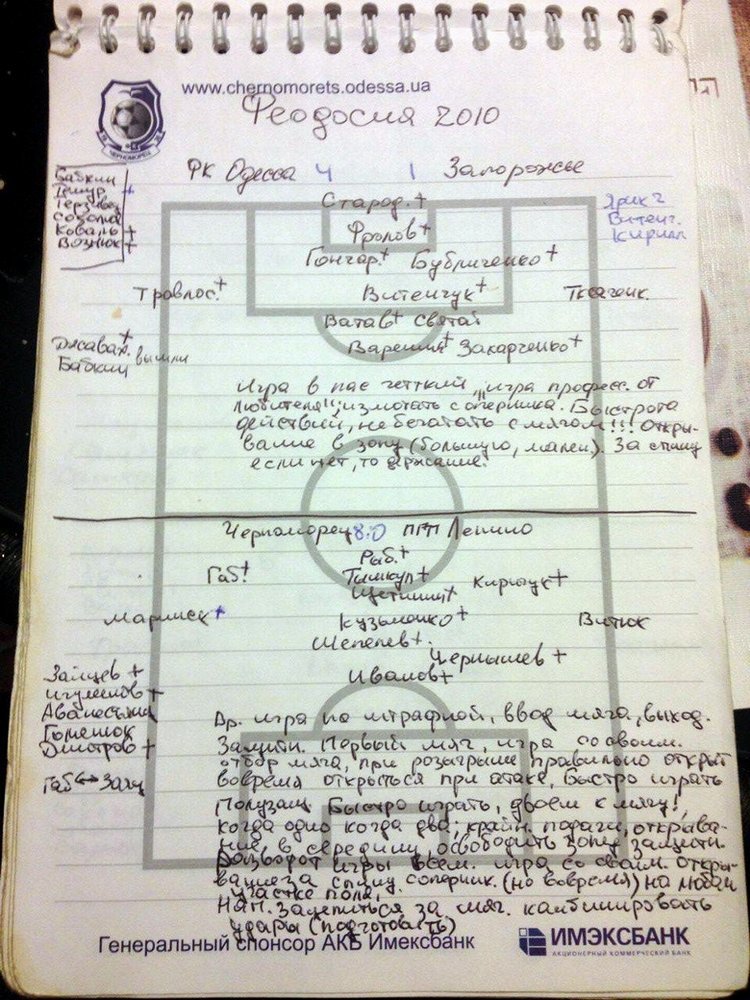 www.chernomorets.odessa.ua
ЧЕРНОМОРЕЦ
Феодосия 2010
ФК Одесса 4 1 Запорожье
Бабкин
Тимур +
Терзи
Соболь
Коваль +
Вознюк +
Старод. +
Фролов +
Гончар. + Бубличенко +
Ярик 2
Витенч.
Кирилл
Травлос. + Витенчук +
Ватав + Святой
Варениц + Захарченко +
Джавах. +
Бабкин вышли
Игра в пас четкий, "игра професс. от
любителя"; измотать соперника. Быстрота
действий, не бегать с мячом!!! Откры-
вание в зону (большую, мален). За спину
если нет, то держание.
Черноморец 8:0 ПГТ Ленино
Раб. +
Габ. + Тимкул + Кирчук +
Щетинин +
Маринск + Кузьменко + Витюк
Шепелев +.
Чернышев +
Иванов +
Зайцев +
Игумнов +
Аванесьян
Гоменюк
Дмитров +
Габ ↔ Зайц
Вр. игра по штрафной, ввод мяча, выход.
Защитн. Первый мяч, игра со своим.
отбор мяча, при розыгрыше правильно открыт
вовремя открыться при атаке, Быстро играть
Полузащ. Быстро играть, двоем к мячу!,
когда одно когда два; крайн. подачи, открыва-
ние в середину, освободить зону защитн.
Разворот игры всем. игра со своим. Откры-
вание за спину соперник. (но вовремя) на любом
участке поля,
Нап. Зацепиться за мяч. комбинировать
удары (подготовить)
Генеральный спонсор АКБ Имексбанк
ИМЭКСБАНК
АКЦИОНЕРНЫЙ КОММЕРЧЕСКИЙ БАНК